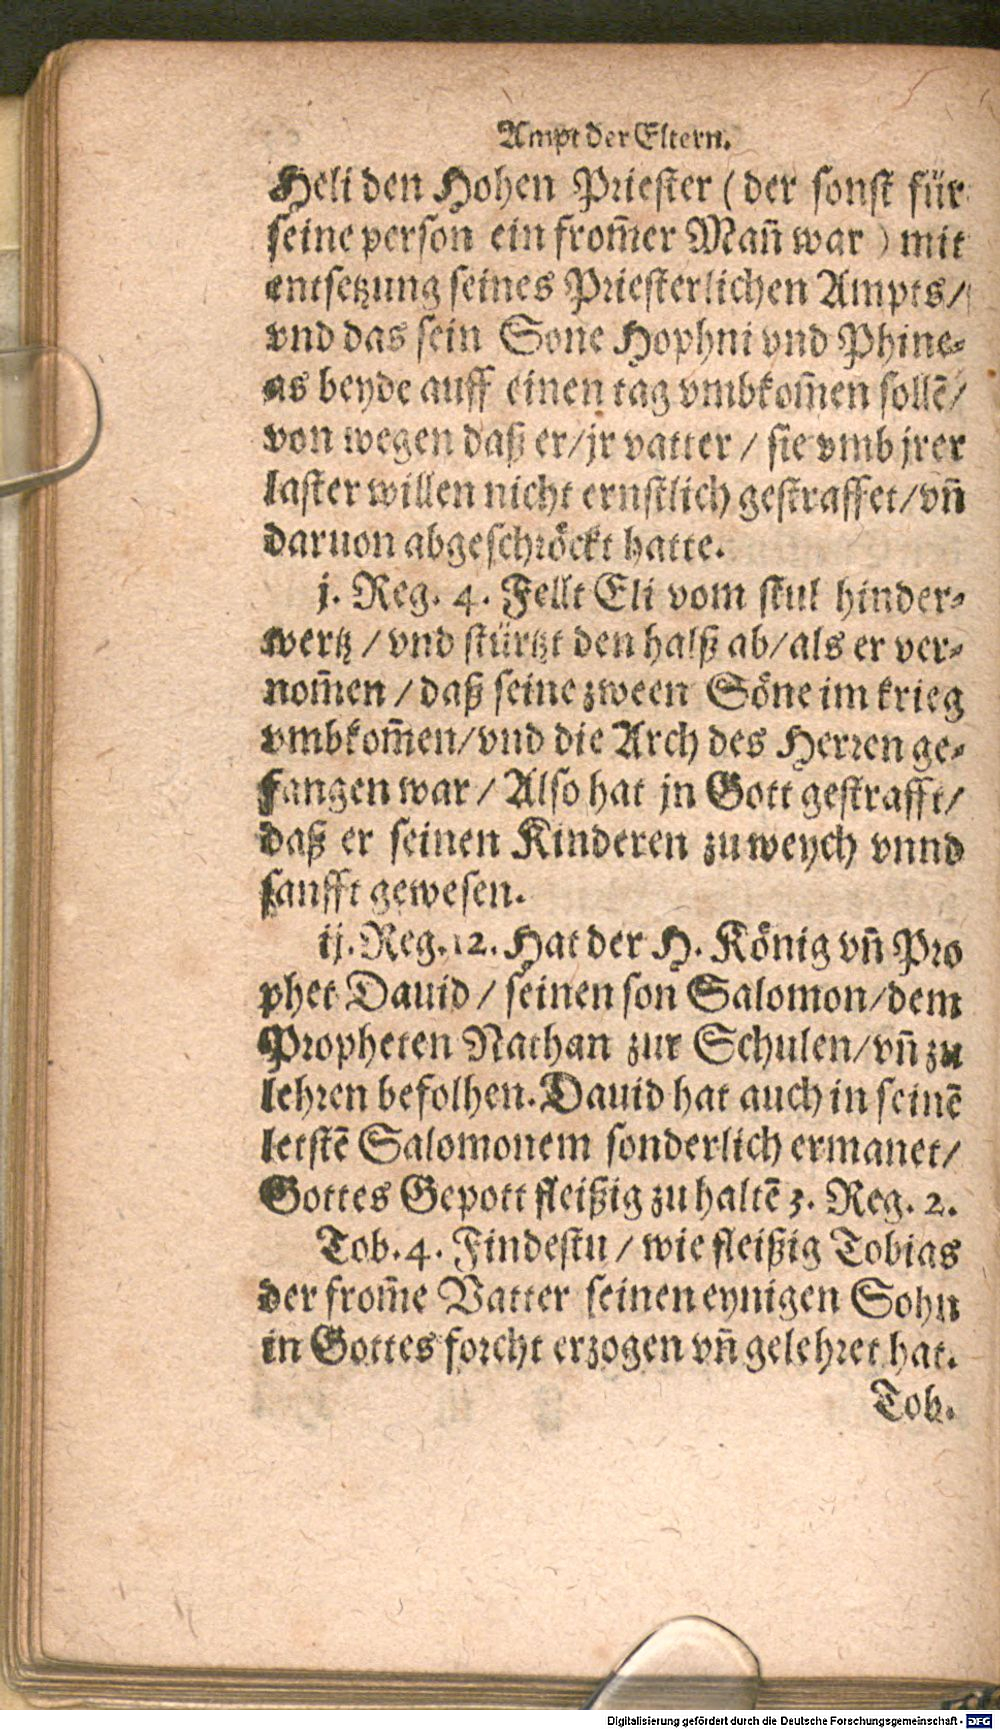 Ampt der Eltern.
Heli den Hohen Priester (der sonst für
seine person ein from̃er Man̄ war) mit
entsetzung seines Priesterlichen Ampts/
vnd das sein Sone Hophni vnd Phine-
as beyde auff einen tag vmbkom̃en sollē/
von wegen daß er/jr vatter / sie vmb jrer
laster willen nicht ernstlich gestraffet/vn̄
daruon abgeschröckt hatte.
j. Reg. 4. Fellt Eli vom stul hinder-
wertz / vnd stürtzt den halß ab/als er ver-
nom̃en / daß seine zween Söne im krieg
vmbkom̃en/vnd die Arch des Herren ge-
fangen war / Also hat jn Gott gestrafft/
daß er seinen Kinderen zu weych vnnd
sanfft gewesen.
ij. Reg. 12. Hat der H. König vn̄ Pro
phet Dauid / seinen son Salomon/dem
Propheten Nathan zur Schulen/vn̄ zu
lehren befolhen. Dauid hat auch in seinē
letstē Salomonem sonderlich ermanet/
Gottes Gepott fleißig zu haltē 3. Reg. 2.
Tob. 4. Findestu / wie fleißig Tobias
der from̃e Vatter seinen eynigen Sohn
in Gottes forcht erzogen vn̄ gelehret hat.
Tob.
Digitalisierung gefördert durch die Deutsche Forschungsgemeinschaft - DFG